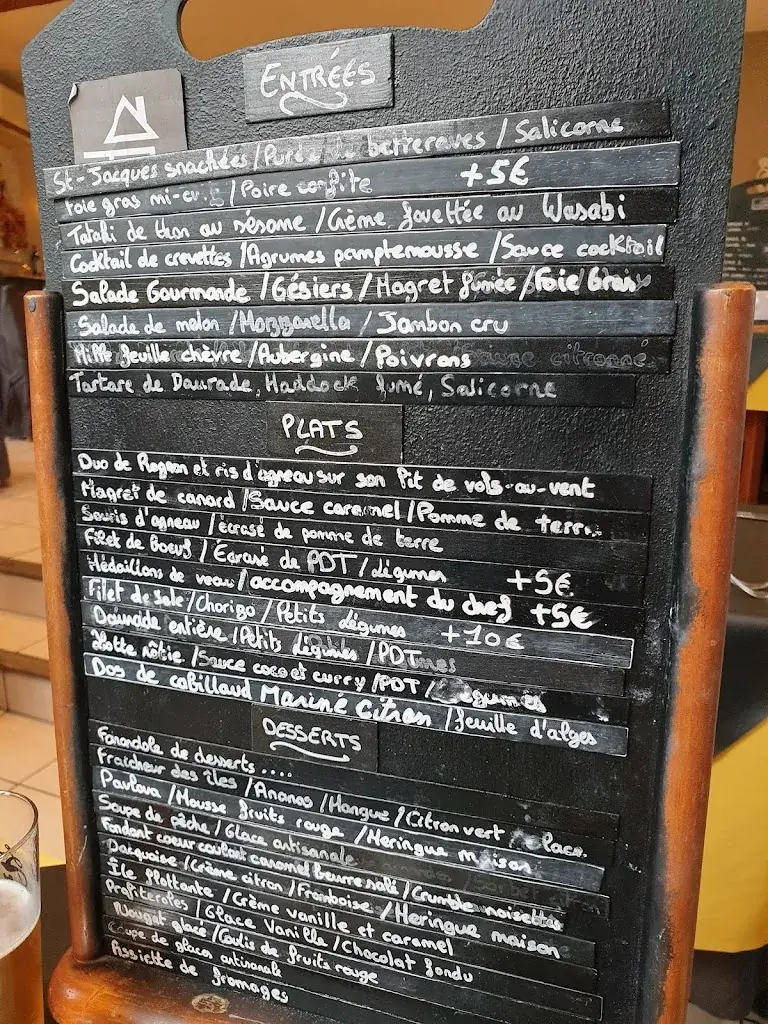 ENTRÉES
St-Jacques snackées / Purée de betteraves / Salicorne
Foie gras mi-cuit / Poire confite +5€
Tataki de thon au sésame / Crème fouettée au Wasabi
Cocktail de crevettes / Agrumes pamplemousse / Sauce cocktail
Salade Gourmande / Gésiers / Magret fumée / Foie Gras
Salade de melon / Mozzarella / Jambon cru
Mille feuille chèvre / Aubergine / Poivrons
Tartare de Daurade, Haddock fumé, Salicorne
PLATS
Duo de Rognon et ris d'agneau sur son lit de vols-au-vent
Magret de canard / Sauce caramel / Pomme de terre
Souris d'agneau / écrasé de pomme de terre
Filet de boeuf / Écrasé de PDT / légumes +5€
Médaillons de veau / accompagnement du chef +5€
Filet de sole / Chorizo / Petits légumes +10€
Daurade entière / Petits légumes / PDT
Lotte rôtie / Sauce coco et curry / PDT / Légumes
Dos de cabillaud Mariné Citron / feuille d'algues
DESSERTS
Farandole de desserts ....
Fraicheur des îles / Ananas / Mangue / Citron vert / glace
Pavlova / Mousse fruits rouge / Meringue maison
Soupe de pêche / Glace artisanale
Fondant coeur coulant caramel beurre salé / Crumble noisettes
Dacquoise / Crème citron / Framboise / Meringue maison
Île flottante / Crème vanille et caramel
Profiteroles / Glace Vanille / Chocolat fondu
Nougat glacé / Coulis de fruits rouge
Coupe de glaces artisanale
Assiette de fromages